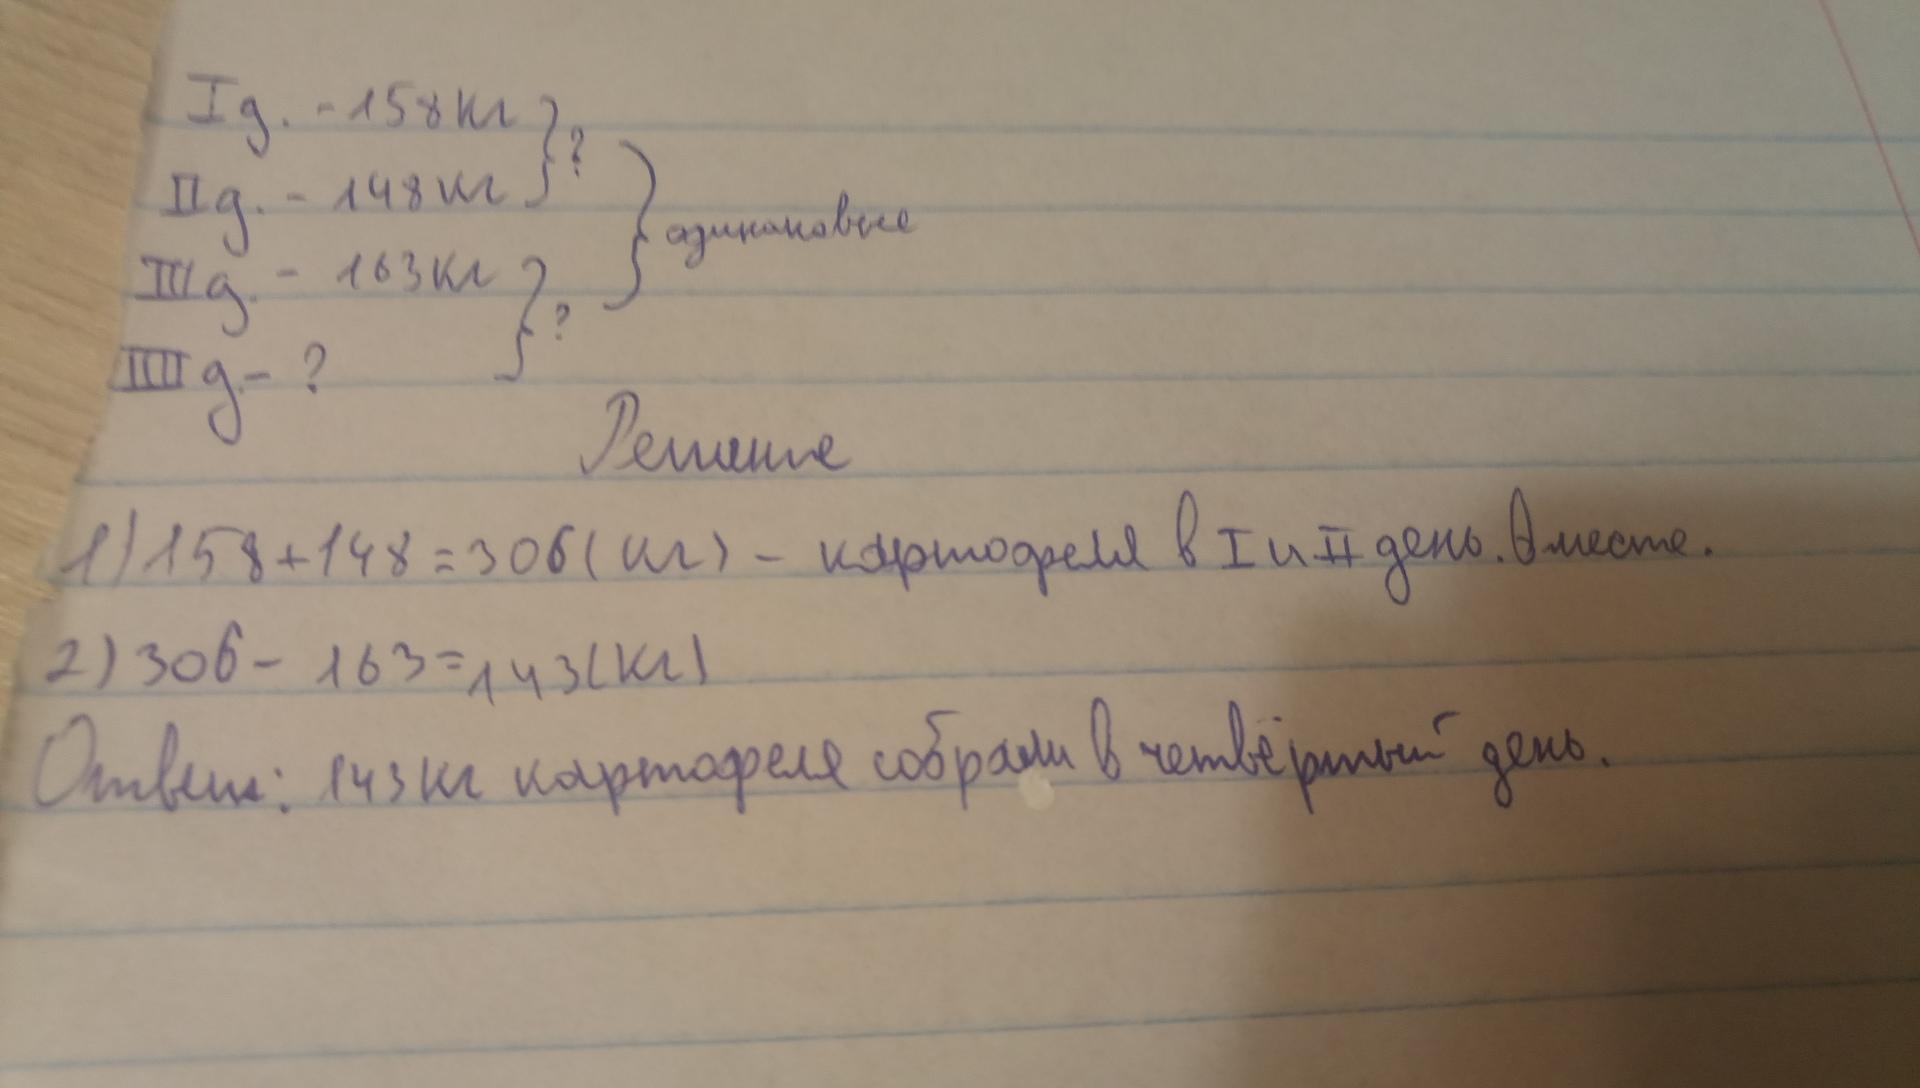 I д. - 158 кг } ?
II д. - 148 кг } одинаковые
III д. - 163 кг } ?
IIII д. - ?
Решение
1) 158 + 148 = 306 (кг) - картофеля в I и II день. Вместе.
2) 306 - 163 = 143 (кг)
Ответ: 143 кг картофеля собрали в четвёртый день.